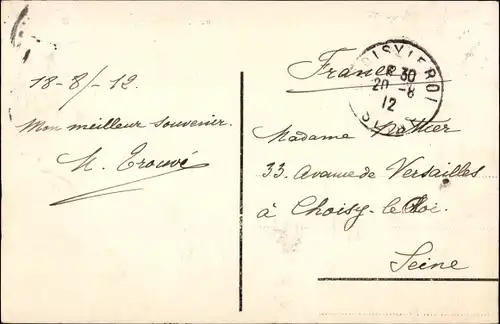 18-8/-12.
Mon meilleur souvenir.
N. Trouvé
France
CHOISY LE ROI
30
20 -8
12
Madame
33. Avenue de Versailles
à Choisy-le-Roi.
Seine